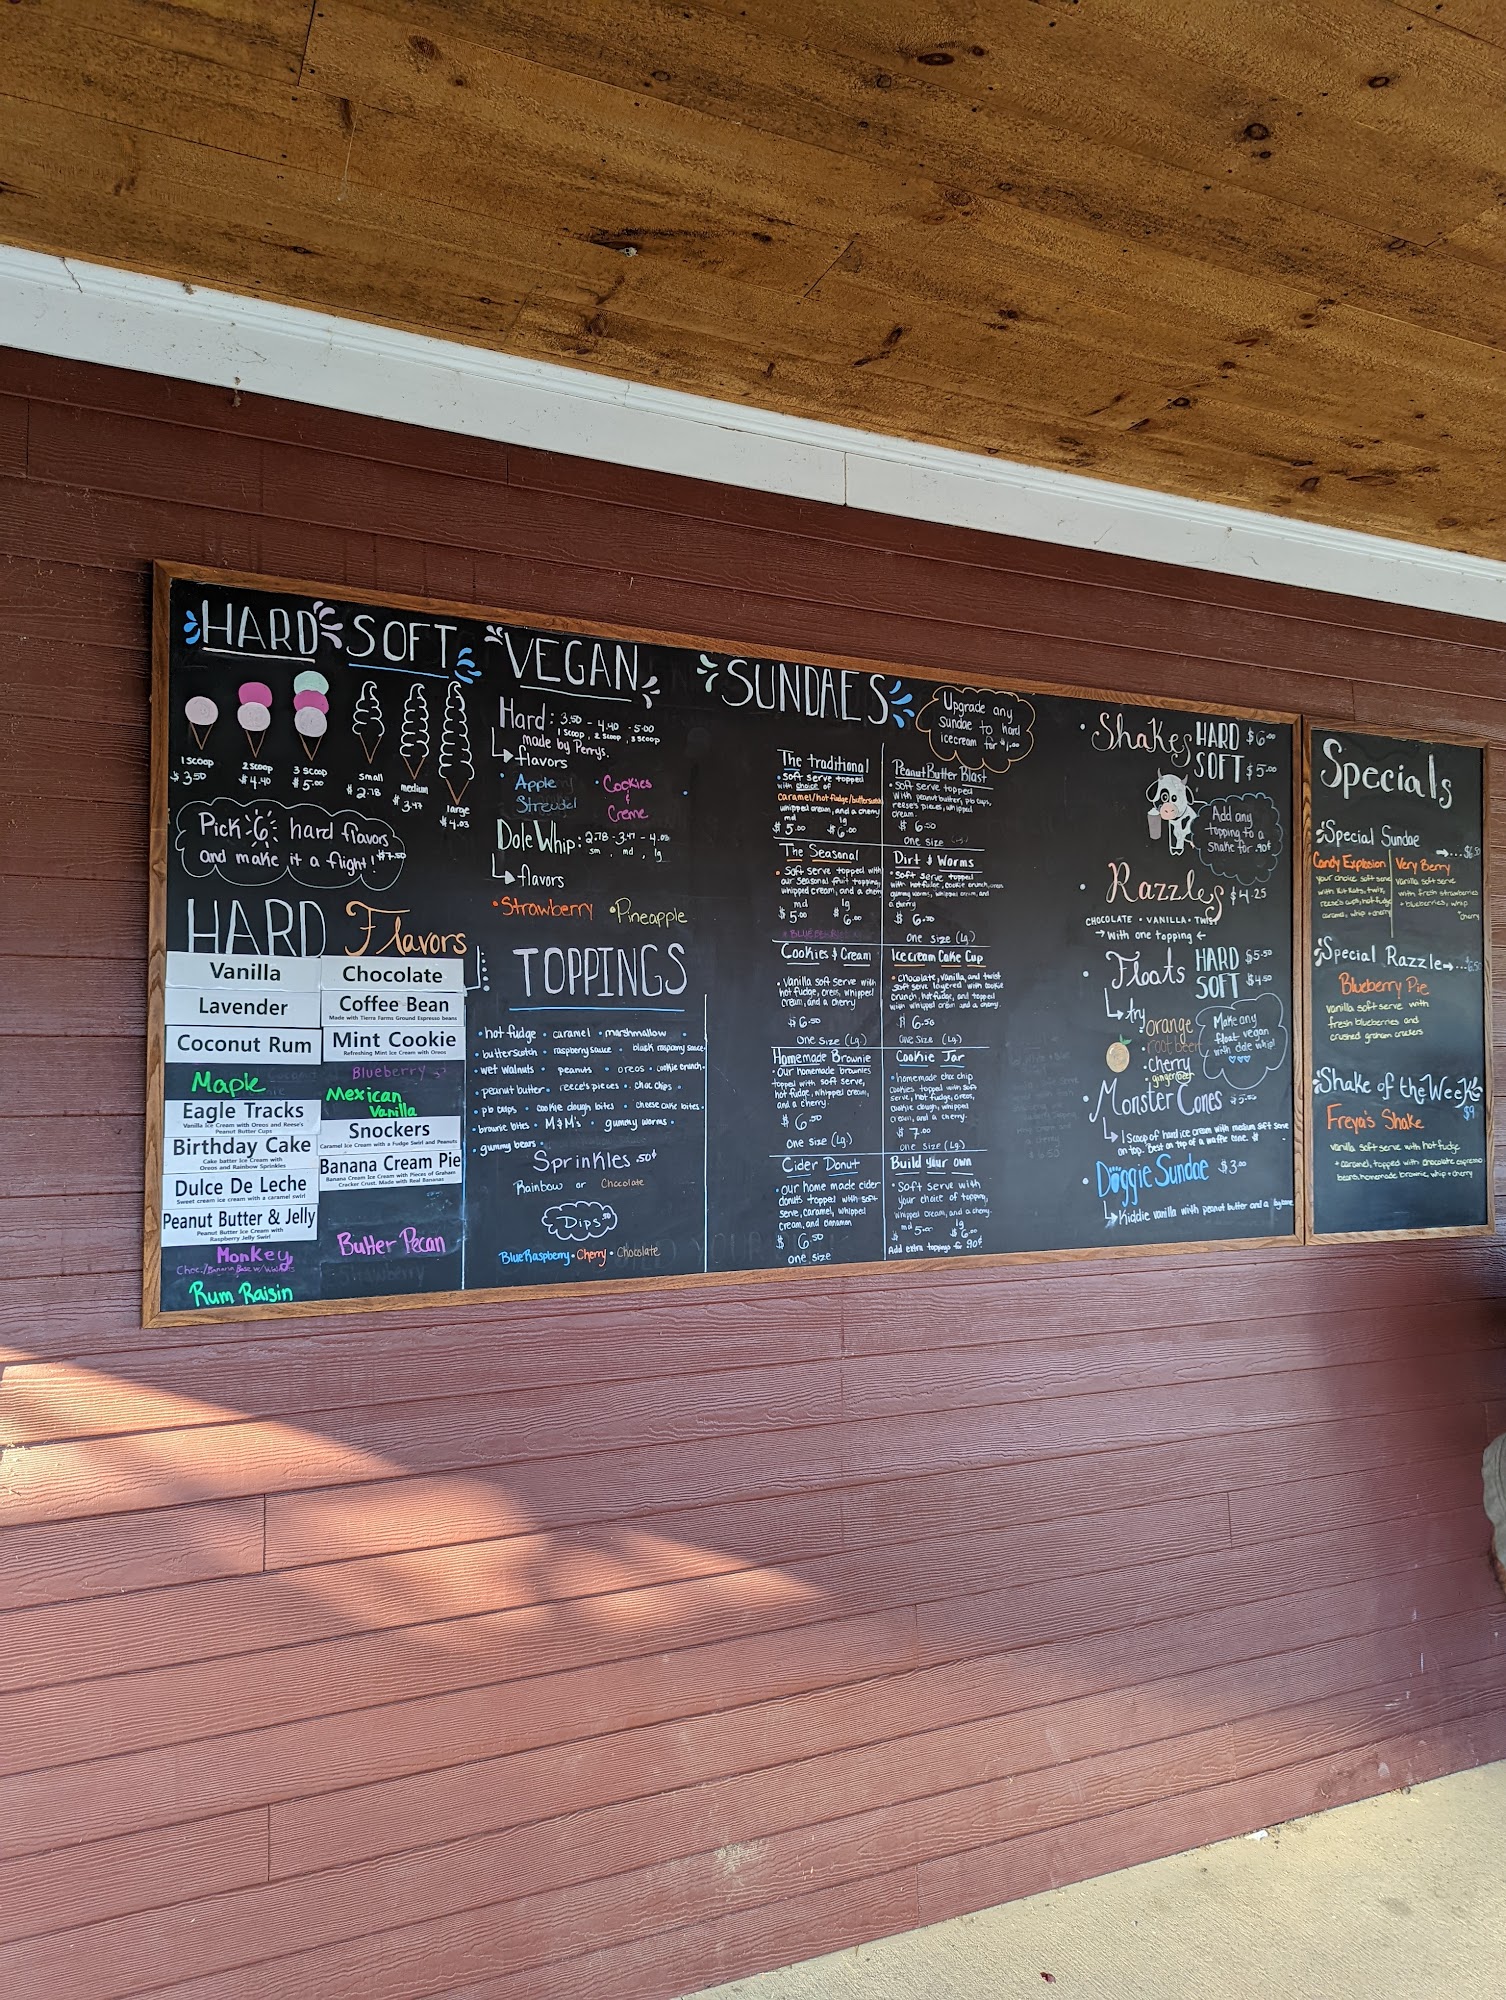 HARD
SOFT
1 scoop
$3.50
2 scoop
$4.40
3 scoop
$5.00
small
$2.78
medium
$3.47
large
$4.03
Pick 6 hard flavors
and make it a flight! $7.50
HARD Flavors
Vanilla
Lavender
Coconut Rum
Maple
Eagle Tracks
Vanilla Ice Cream with Oreos and Reese's
Peanut Butter Cups
Birthday Cake
Cake batter Ice Cream with
Oreos and Rainbow Sprinkles
Dulce De Leche
Sweet cream ice cream with a caramel swirl
Peanut Butter & Jelly
Peanut Butter Ice Cream with
Raspberry Jelly Swirl
Monkey
Rum Raisin
Chocolate
Coffee Bean
Made with Tierra Farms Ground Espresso beans
Mint Cookie
Refreshing Mint Ice Cream with Oreos
Blueberry
Mexican
Vanilla
Snockers
Caramel Ice Cream with a Fudge Swirl and Peanuts
Banana Cream Pie
Banana Cream Ice Cream with Pieces of Graham
Cracker Crust. Made with Real Bananas
Butter Pecan
VEGAN
Hard: 3.50 - 4.40 - 5.00
1 scoop, 2 scoop, 3 scoop
made by Perrys.
flavors
• Apple
Streudel
• Cookies
&
Creme
Dole Whip: 2.78 - 3.47 - 4.03
sm, md, lg
flavors
• Strawberry • Pineapple
TOPPINGS
• hot fudge • caramel • marshmallow •
• butterscotch • raspberry sauce • black raspberry sauce •
• wet walnuts • peanuts • oreos • cookie crunch •
• peanut butter • reece's pieces • choc chips •
• pb cups • cookie dough bites • cheese cake bites •
• brownie bites • M&M's • gummy worms •
• gummy bears •
Sprinkles .50¢
Rainbow or Chocolate
Dips
Blue Raspberry • Cherry • Chocolate
SUNDAES
Upgrade any
Sundae to hard
icecream for $1.00
The traditional
• soft serve topped
with choice of
caramel/hot fudge/butterscotch
whipped cream, and a cherry
md lg
$5.00 $6.00
The Seasonal
• Soft serve topped with
our seasonal fruit topping,
whipped cream, and a cherry
md lg
$5.00 $6.00
Cookies & Cream
• Vanilla soft serve with
hot fudge, oreos, whipped
cream, and a cherry
$6.50
one size (Lg.)
Homemade Brownie
• Our homemade brownies
topped with soft serve,
hot fudge, whipped cream,
and a cherry
$6.50
one size (Lg.)
Cider Donut
• our home made cider
donuts topped with soft
serve, caramel, whipped
cream, and cinnamon
$6.50
one size
Peanut Butter Blast
• Soft serve topped
with peanut butter, pb cups,
reese's pieces, whipped
cream
$6.50
one size
Dirt & Worms
• Soft serve topped
with hot fudge, cookie crunch, oreo
gummy worms, whipped cream, and
a cherry
$6.50
one size (Lg.)
Ice cream Cake Cup
• chocolate, vanilla, and twist
soft serve layered with cookie
crunch, hot fudge, and topped
with whipped cream and a cherry.
$6.50
one size (Lg.)
Cookie Jar
• homemade choc chip
cookies topped with soft
serve, hot fudge, oreos,
cookie dough, whipped
cream, and a cherry.
$7.00
one size (Lg.)
Build your own
• Soft serve with
your choice of topping,
whipped cream, and a cherry.
md lg
$5.00 $6.00
Add extra toppings for .90¢
• Shakes HARD $6.00
SOFT $5.00
Add any
topping to a
Shake for .90¢
• Razzles $4.25
CHOCOLATE • VANILLA • TWIST
→ With one topping ←
• Floats HARD $5.50
SOFT $4.50
try
orange
root beer
cherry
ginger beer
Make any
float vegan
with dole whip!
• Monster Cones
1 scoop of hard ice cream with medium soft serve
on top. Best on top of a waffle cone.
• Doggie Sundae $3.00
Kiddie vanilla with peanut butter and a
Specials
Special Sundae
Candy Explosion
your choice soft serve
with Kit Kats, twix,
reese's cups, hot fudge
caramel, whip + cherry
Very Berry
Vanilla soft serve
with fresh strawberries
+ blueberries, whip
+ cherry
Special Razzle
Blueberry Pie
vanilla soft serve with
fresh blueberries and
crushed graham crackers
Shake of the Week
$9
Freya's Shake
vanilla soft serve with hot fudge
+ caramel, topped with chocolate espresso
beans, homemade brownie, whip + cherry